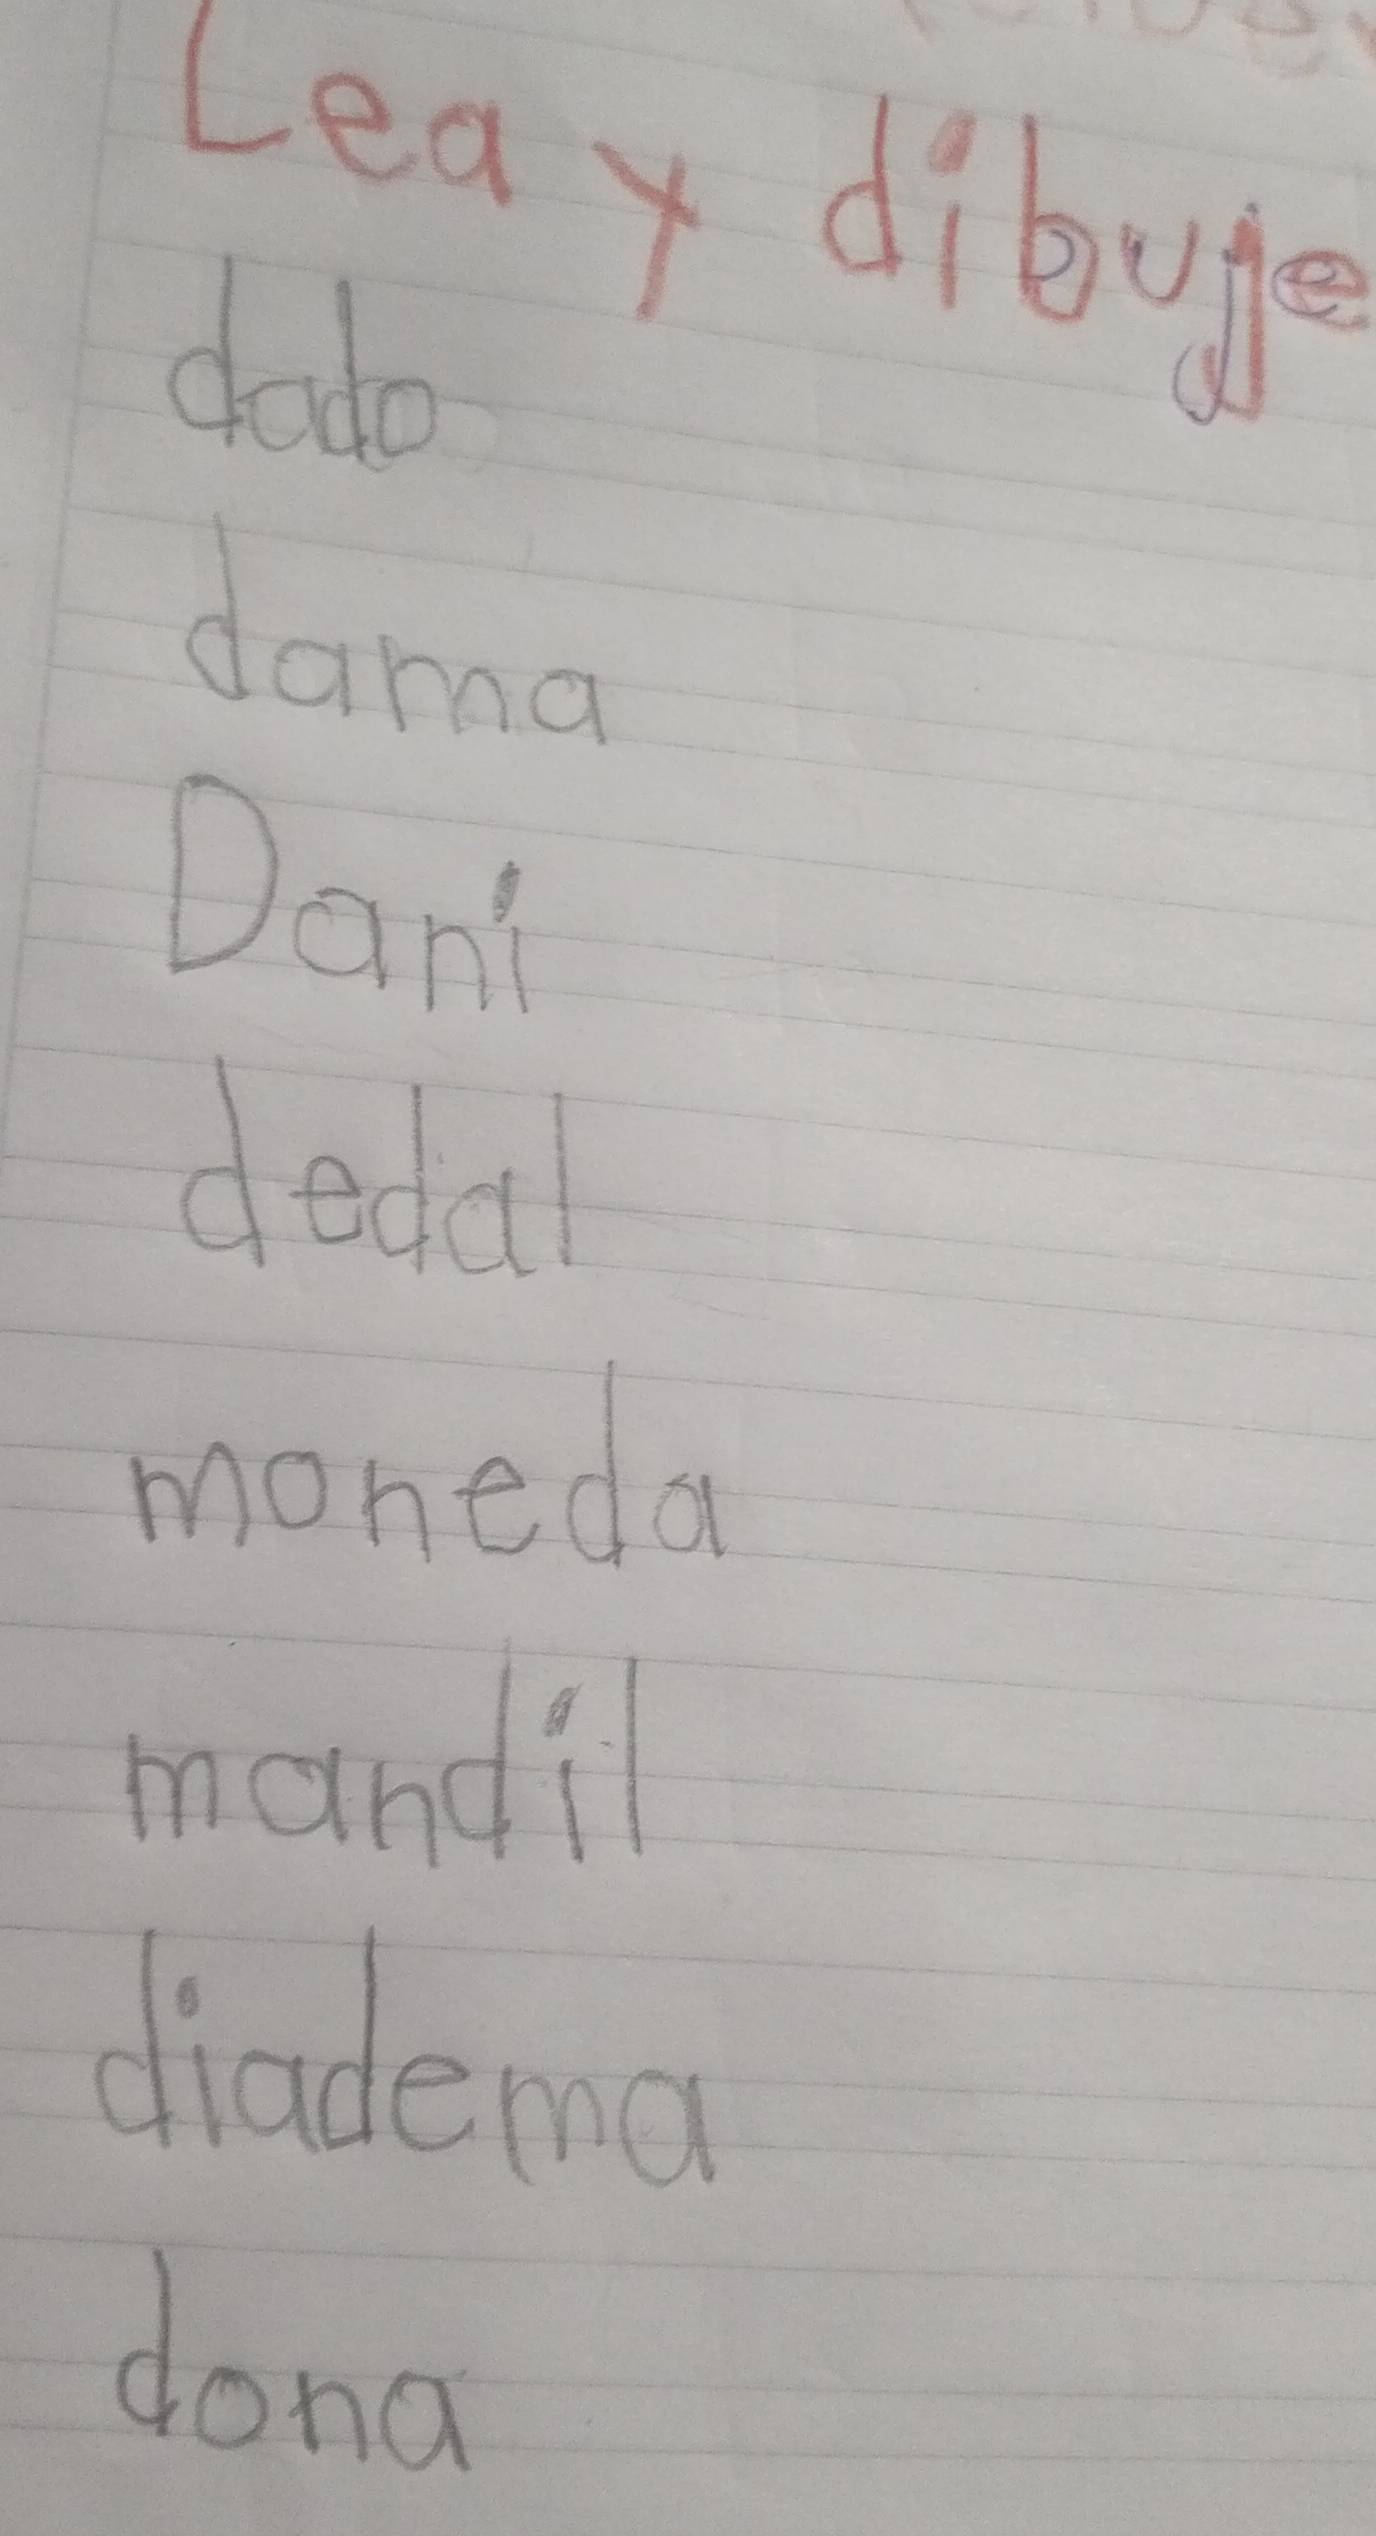 Lea y dibuje
dado
dama
Dani
dedal
moneda
mandil
diadema
dona